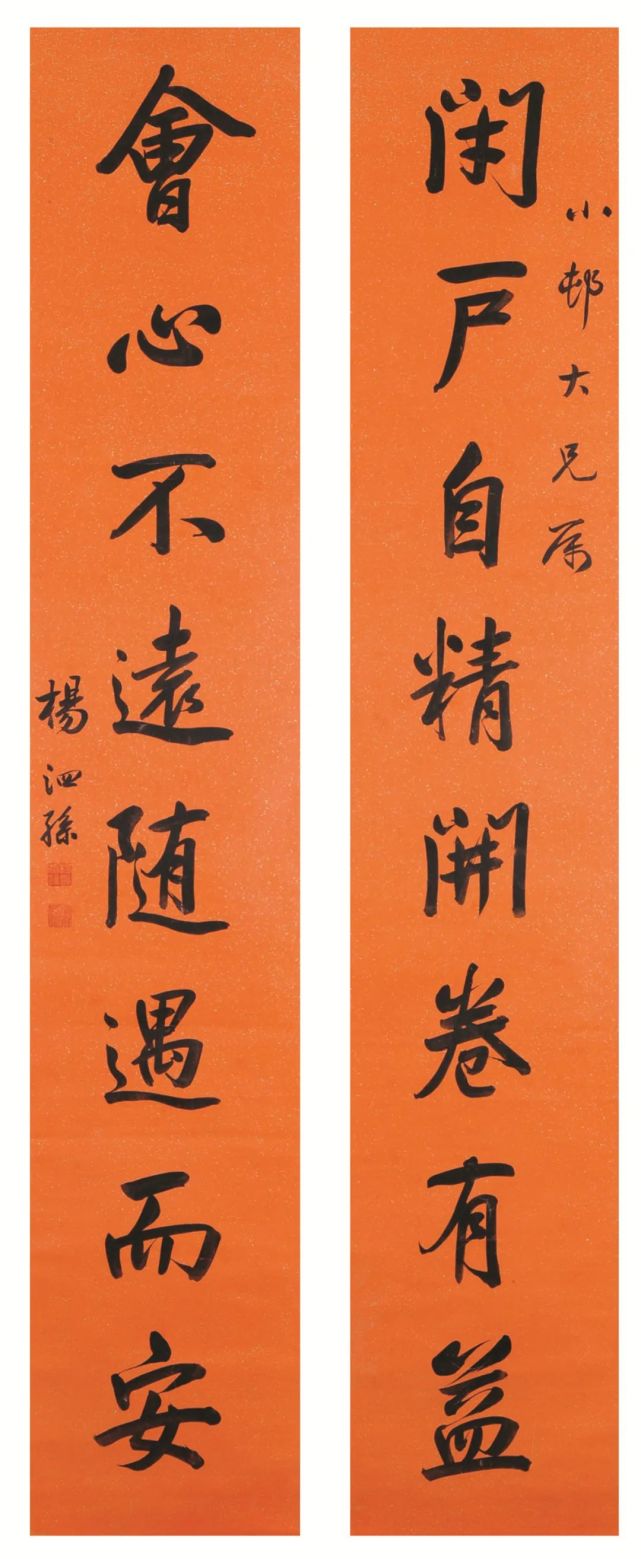 小邨大兄属
閉户自精開卷有益
會心不遠随遇而安
楊泗孫